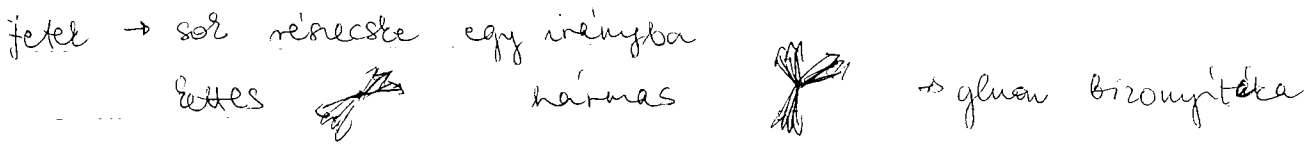 jetek → sok részecske egy irányba
kettes hármas → gluon bizonyítéka